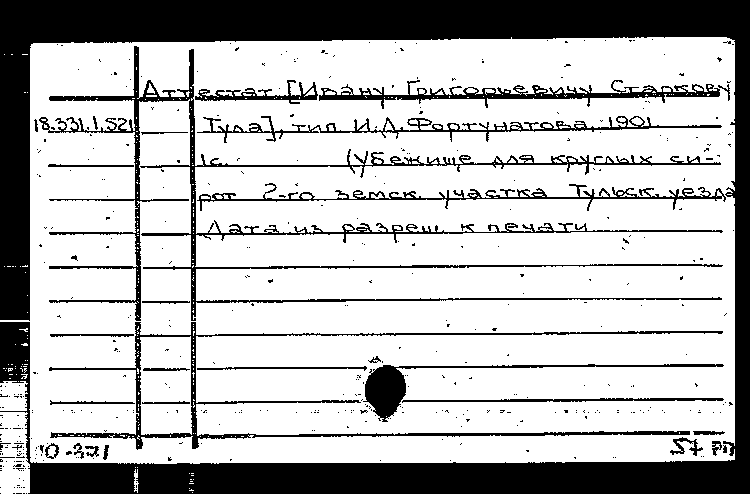 Аттестат [Ивану Григорьевичу Старкову
18.331.1.521 Тула], тип. И.Д. Фортунатова, 1901
1с. (Убежище для круглых си-
рот 2-го земск. участка Тульск. уезда
Дата из разреш. к печати
10-321 57 РП